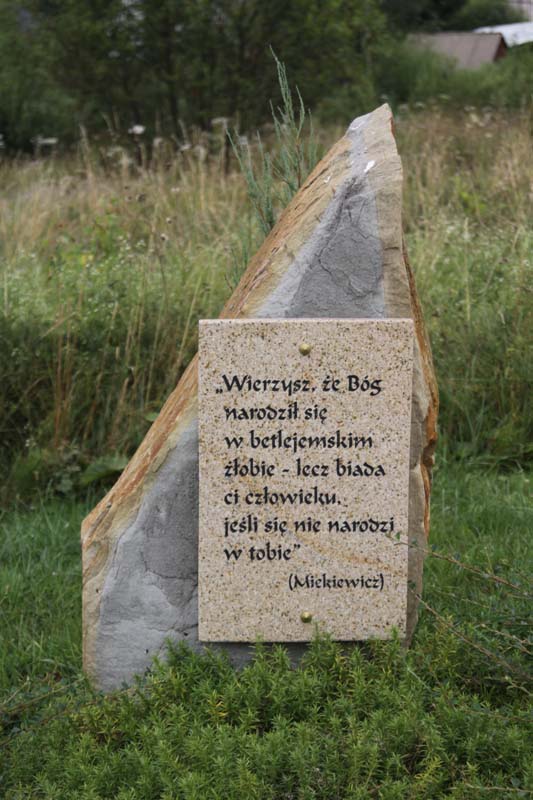 „Wierzysz, że Bóg
narodził się
w betlejemskim
żłobie - lecz biada
ci człowieku,
jeśli się nie narodzi
w tobie”
(Mickiewicz)